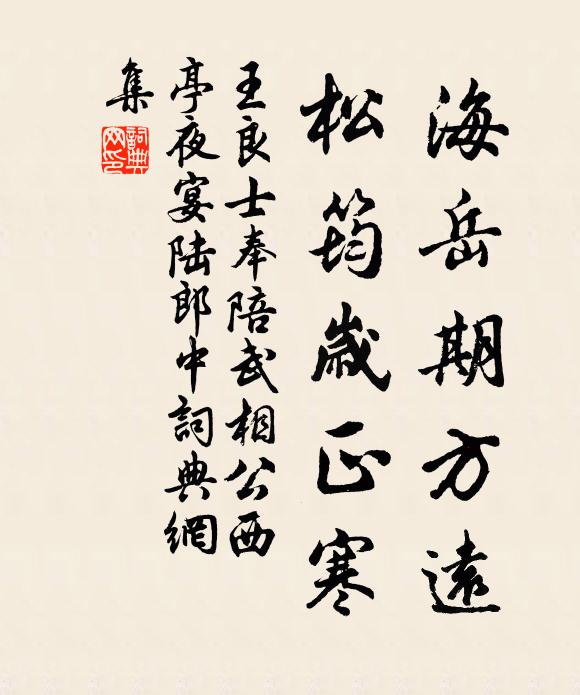 海岳期方遠
松筠歲正寒
王良士奉陪武相公西
亭夜宴陆郎中詞典網
集
詞典
网印